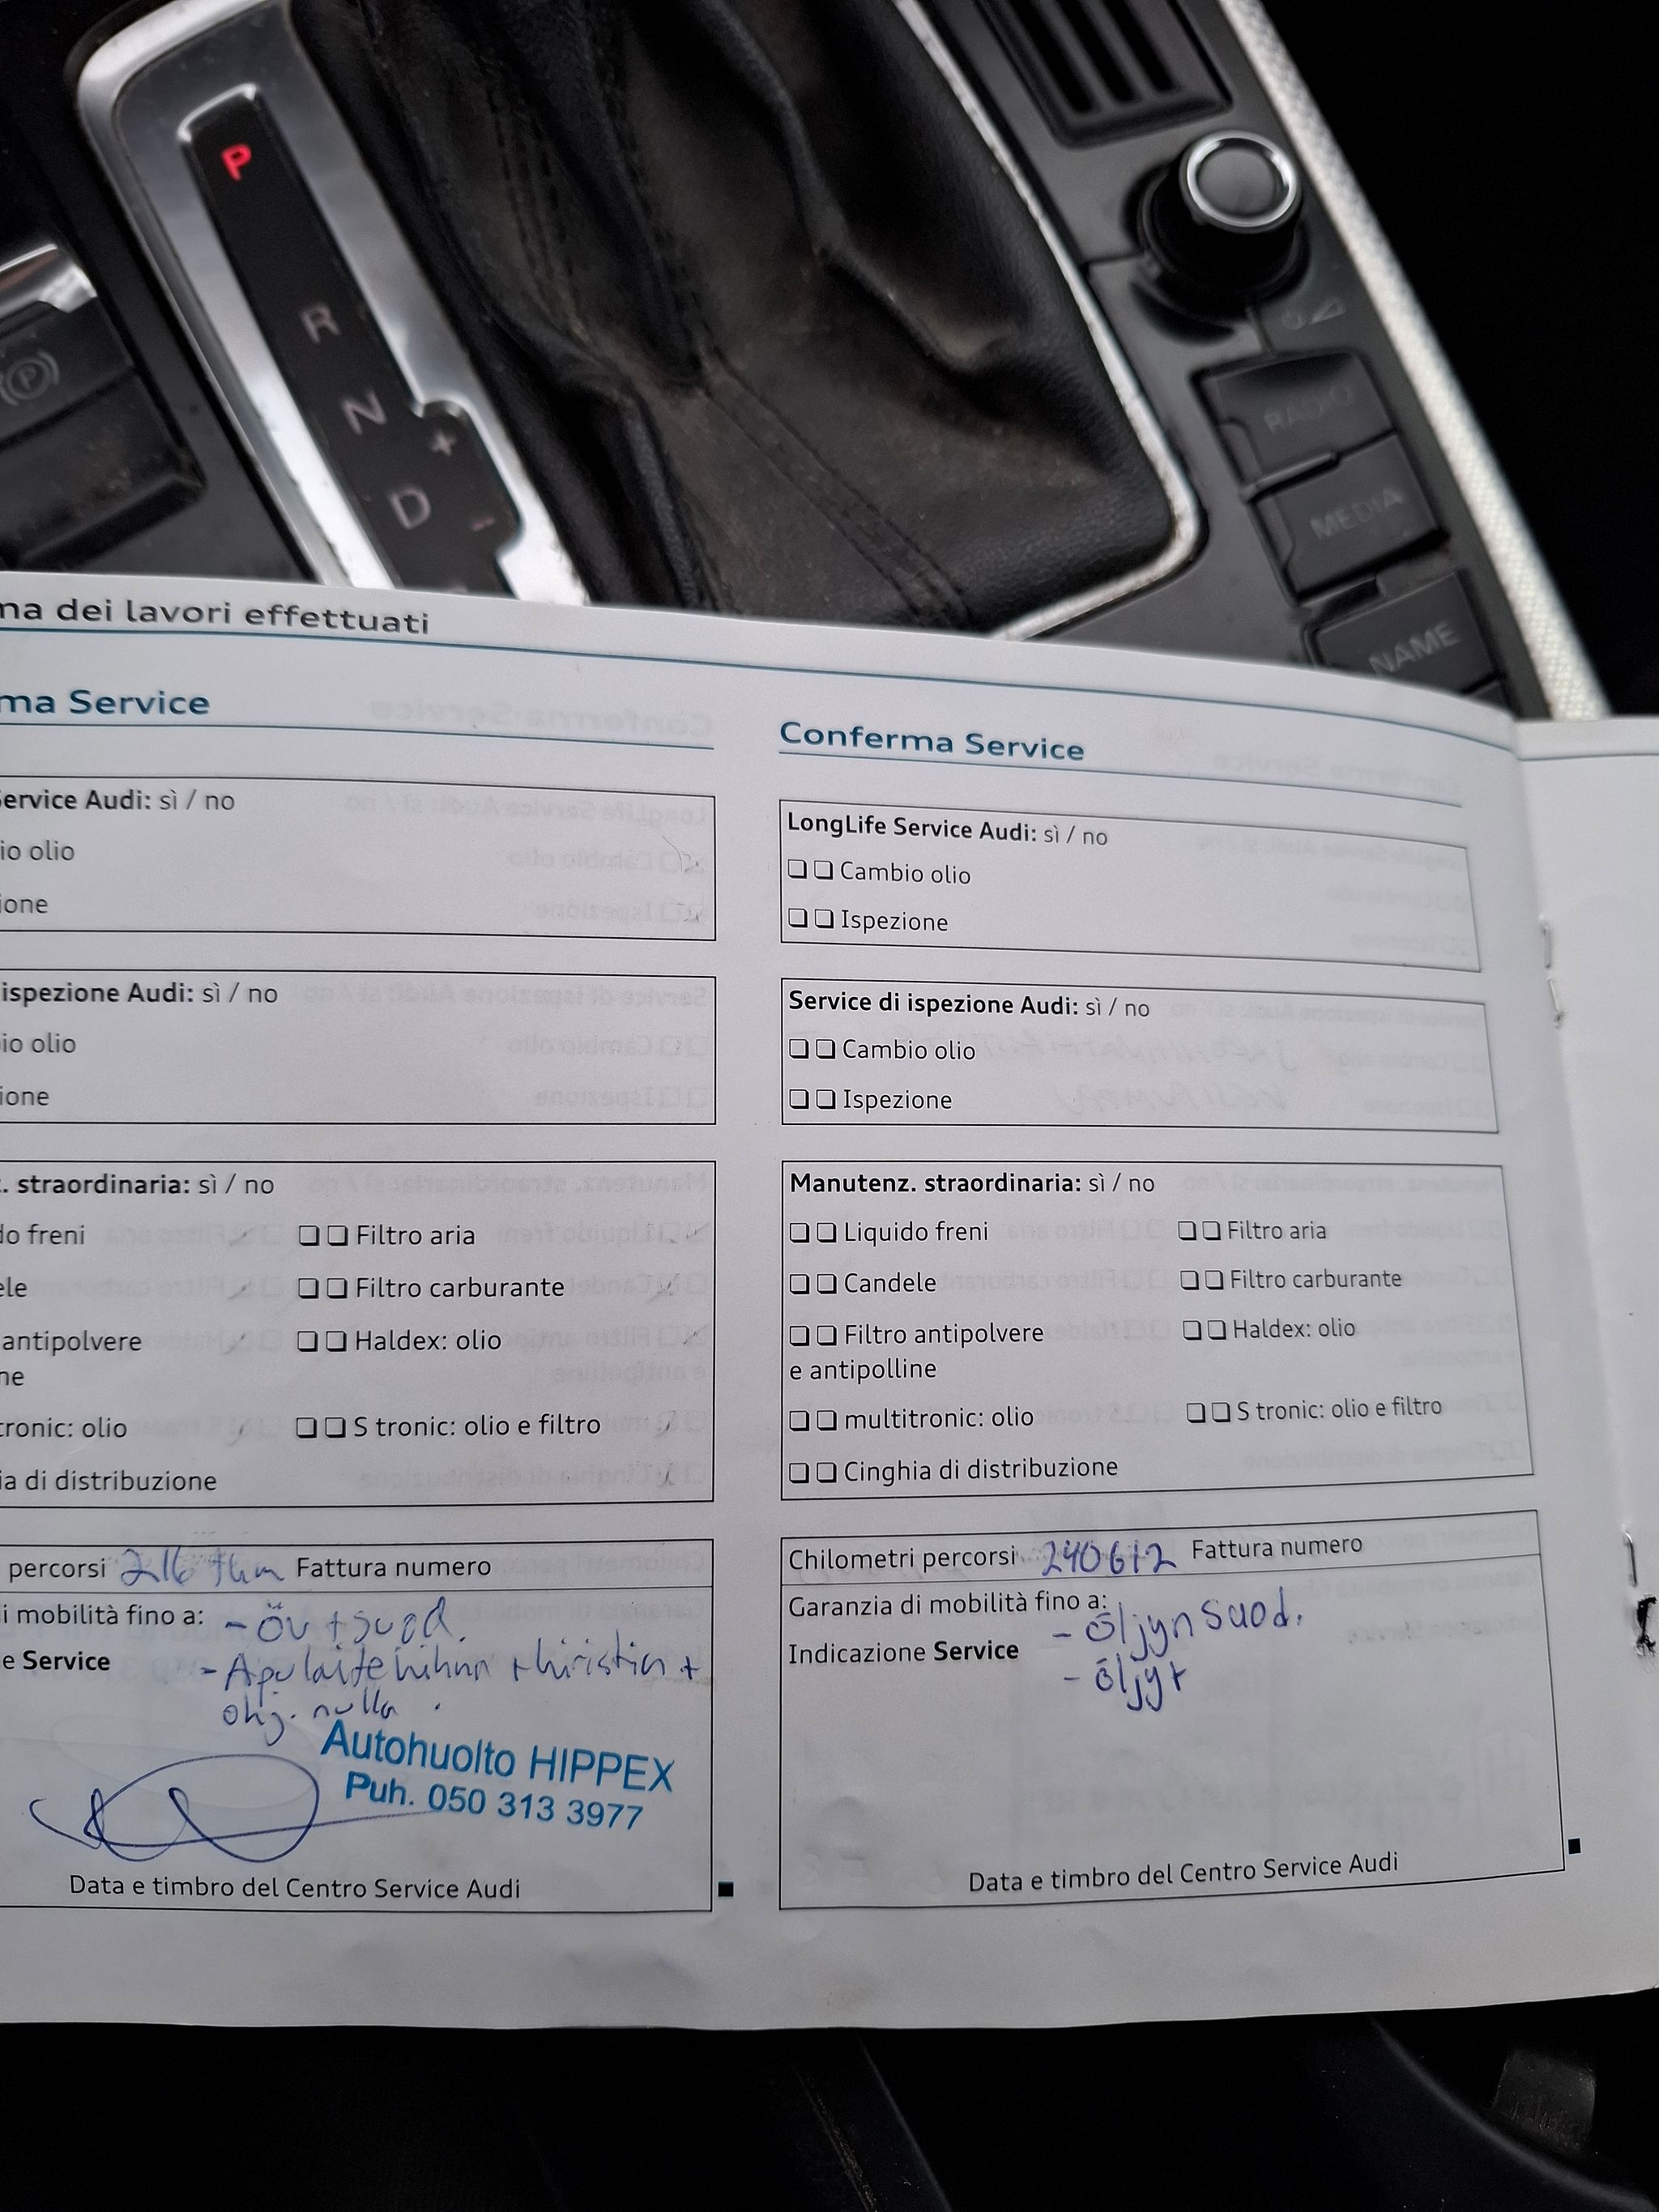 P
R
N
+
D
-
P
RADIO
MEDIA
NAME
ma dei lavori effettuati
ma Service
Service Audi: sì / no
io olio
ione
ispezione Audi: sì / no
io olio
ione
. straordinaria: sì / no
do freni ❏ ❏ Filtro aria
ele ❏ ❏ Filtro carburante
antipolvere ❏ ❏ Haldex: olio
ne
tronic: olio ❏ ❏ S tronic: olio e filtro
ia di distribuzione
percorsi 216 tkm Fattura numero
i mobilità fino a: - Öv + suod.
e Service - Apulaitehihna + kiristin +
ohj. rulla.
Autohuolto HIPPEX
Puh. 050 313 3977
Data e timbro del Centro Service Audi
Conferma Service
LongLife Service Audi: sì / no
❏ ❏ Cambio olio
❏ ❏ Ispezione
Service di ispezione Audi: sì / no
❏ ❏ Cambio olio
❏ ❏ Ispezione
Manutenz. straordinaria: sì / no
❏ ❏ Liquido freni ❏ ❏ Filtro aria
❏ ❏ Candele ❏ ❏ Filtro carburante
❏ ❏ Filtro antipolvere ❏ ❏ Haldex: olio
e antipolline
❏ ❏ multitronic: olio ❏ ❏ S tronic: olio e filtro
❏ ❏ Cinghia di distribuzione
Chilometri percorsi 240612 Fattura numero
Garanzia di mobilità fino a: - öljynsuod.
Indicazione Service - öljyt
Data e timbro del Centro Service Audi